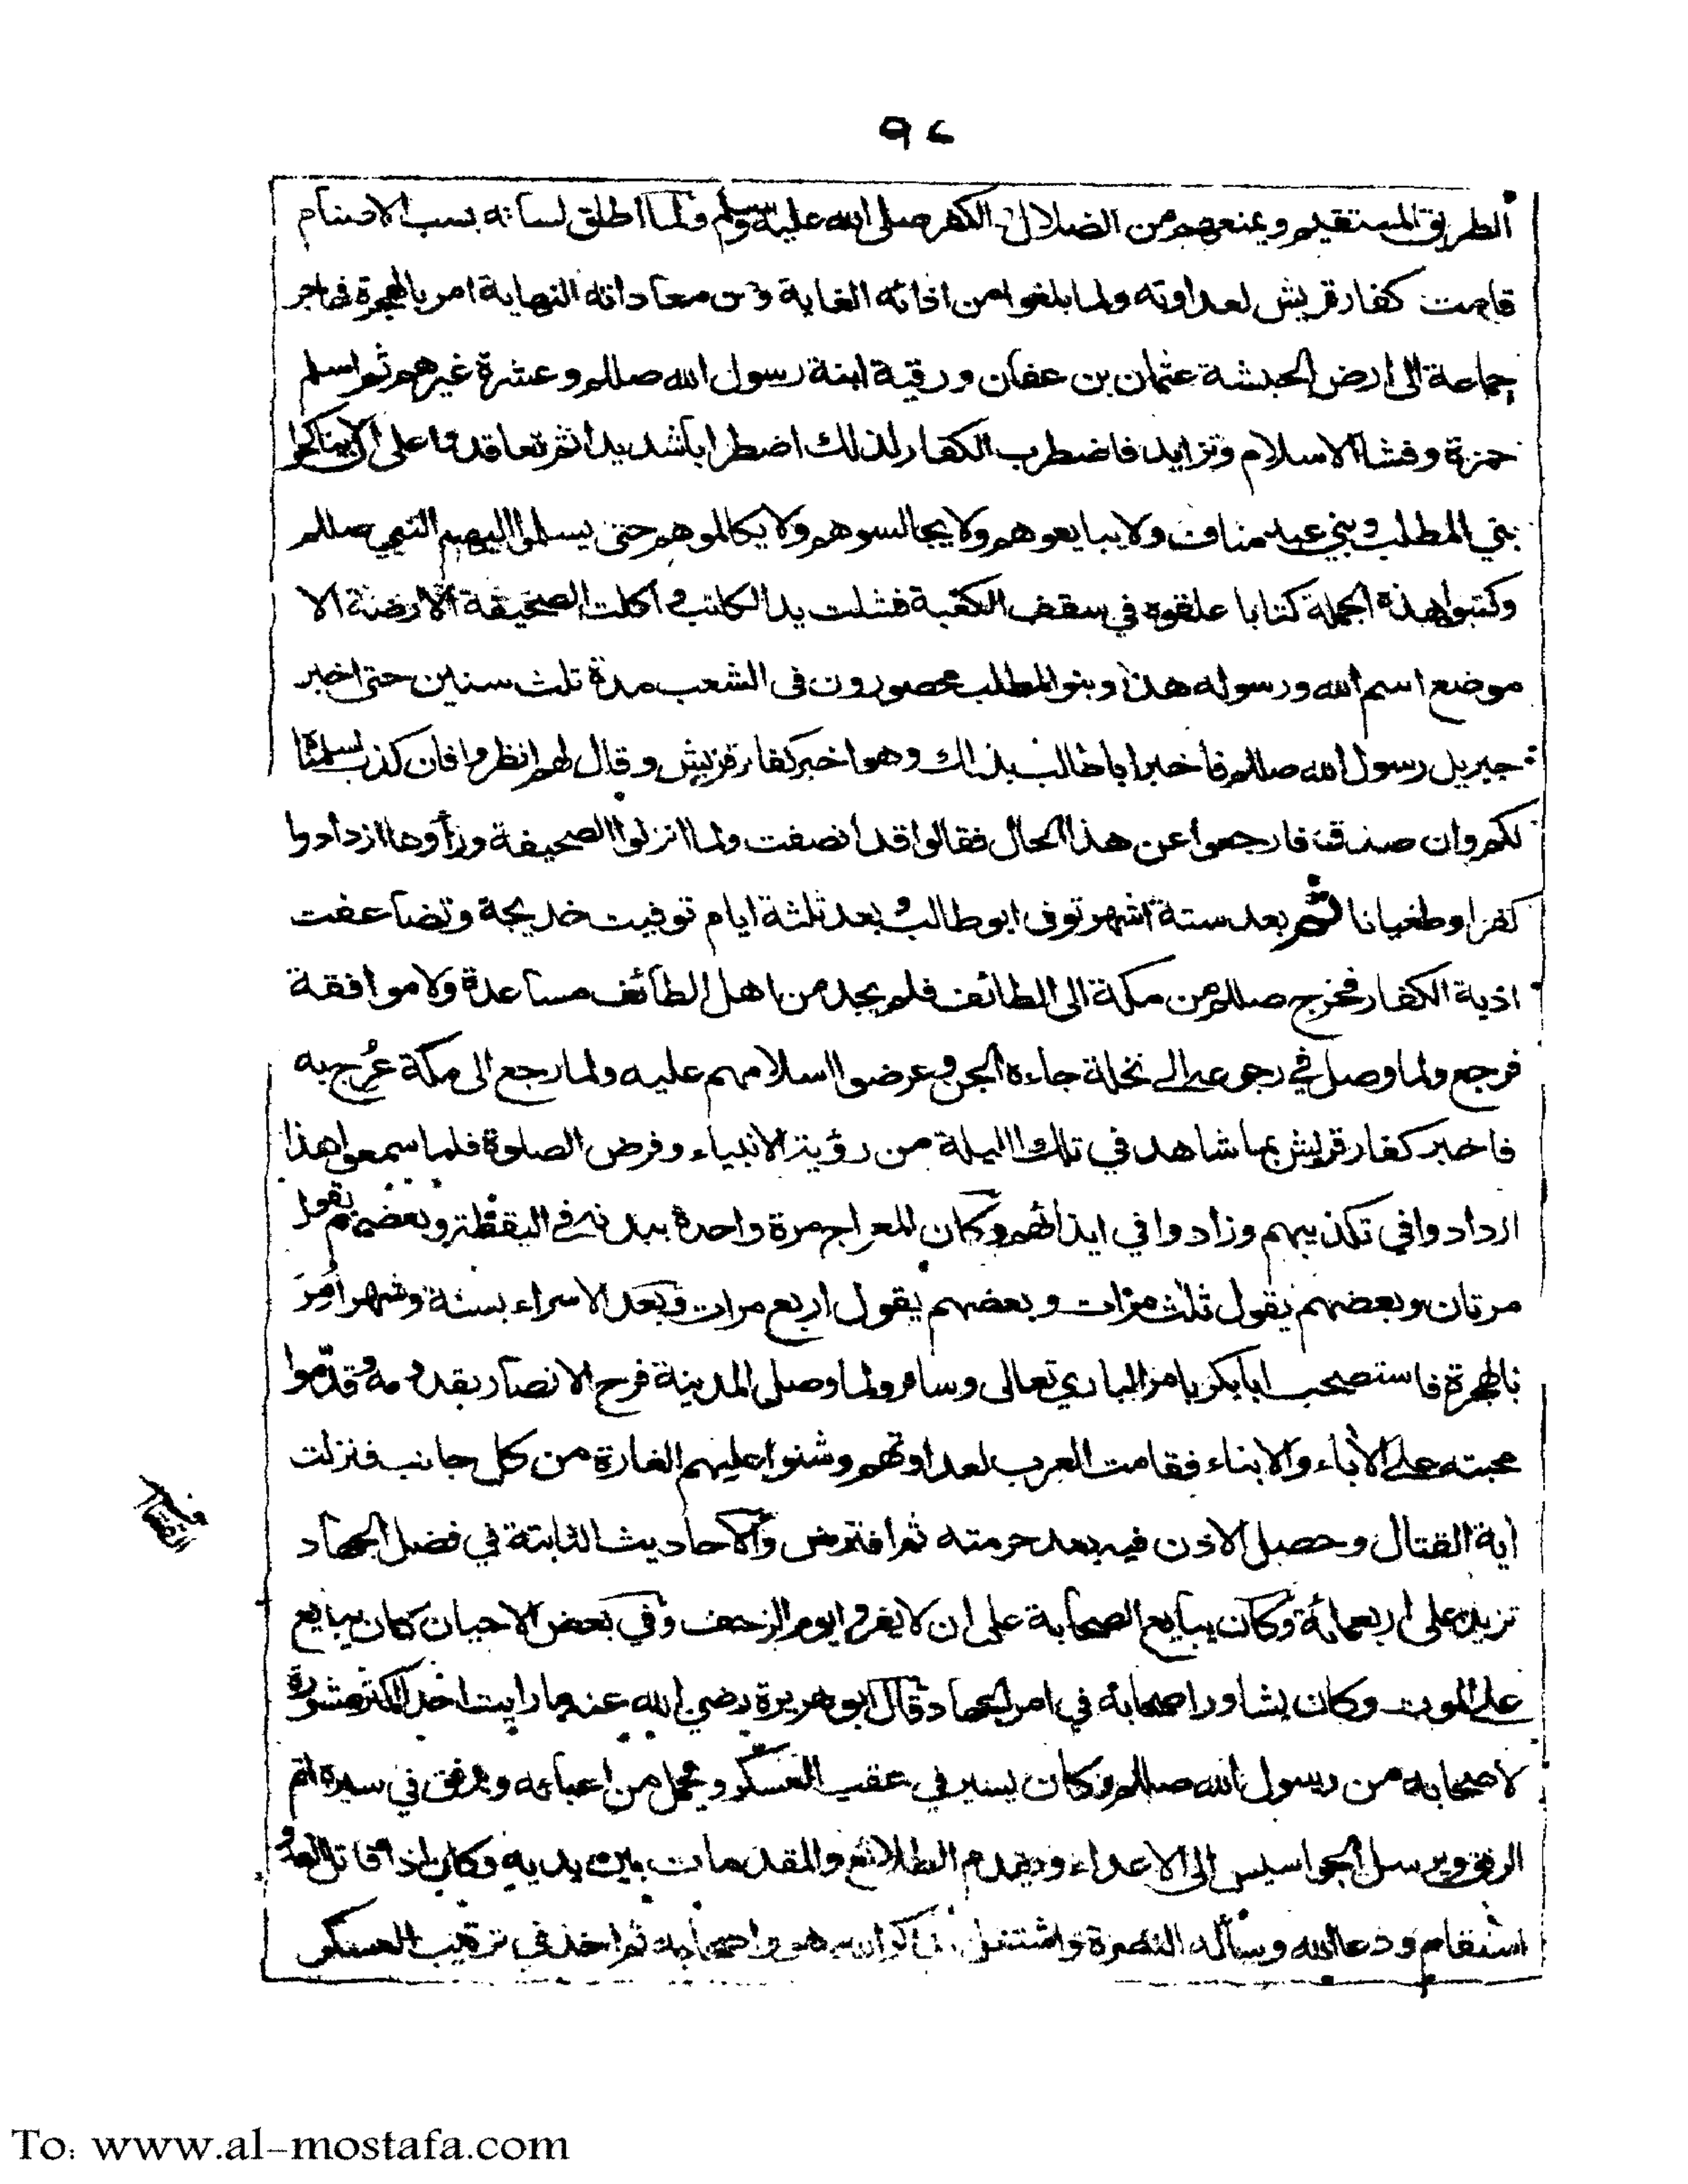 ٩٤
الطريق المستقيم ويمنعهم من الضلال الكفر صلى الله عليه وسلم ولما اطلق لسانه بسب الاصنام
قامت كفار قريش لعداوته ولما بلغوا من اذائه الغاية ومن معاداته النهاية امر بالهجرة فهاجر
جماعة الى ارض الحبشة عثمان بن عفان ورقية ابنة رسول الله صللم وعشرة غيرهم ثم اسلم
حمزة وفشا الاسلام وتزايد فاضطرب الكفار لذلك اضطرابا شديدا ثم تعاقدوا على ان لا يناكحوا
بني المطلب وبني عبد مناف ولا يبايعوهم ولا يجالسوهم ولا يكالموهم حتى يسلموا اليهم النبي صللم
وكتبوا هذة الجملة كتابا علقوه في سقف الكعبة فشلت يد الكاتب واكلت الصحيفة الارضة الا
موضع اسم الله ورسوله هذا وبنو المطلب محصورون فى الشعب مدة ثلث سنين حتى اخبر
جبريل رسول الله صللم فاخبر اباطالب بذلك وهو اخبر كفار قريش وقال لهم انظروا فان كذب سلمنا
لكم وان صدق فارجعوا عن هذا الحال فقالوا قد انصفت ولما انزلوا الصحيفة ورأوها ازدادوا
كفرا وطغيانا ثم بعد ستة اشهر توفى ابو طالب وبعد ثلثة ايام توفيت خديجة وتضاعفت
اذية الكفار فخرج صللم من مكة الى الطائف فلم يجد من اهل الطائف مساعدة ولا موافقة
فرجع ولما وصل في رجوعه الى نخلة جاءه الجن وعرضوا اسلامهم عليه ولما رجع الى مكة عُرج به
فاخبر كفار قريش بما شاهد في تلك الليلة من رؤية الانبياء وفرض الصلوة فلما سمعوا هذا
ازدادوا في تكذيبهم وزادوا في ايذائهم وكان المعراج مرة واحدة ببدنه في اليقظة وبعضهم يقول
مرتان وبعضهم يقول ثلث مرات وبعضهم يقول اربع مرات وبعد الاسراء بسنة وشهر اُمِرَ
بالهجرة فاستصحب ابابكر بامر الباري تعالى وسافر ولما وصل المدينة فرح الانصار بقدومه وقدّموا
محبته على الأباء والابناء فقامت العرب لعداوتهم وشنوا عليهم الغارة من كل جانب فنزلت
اية القتال وحصل الاذن فيه بعد حرمته ثم افترض والاحاديث الثابتة في فضل الجهاد
تزيد على اربعمائة وكان يبايع الصحابة على ان لا يفروا يوم الزحف وفي بعض الاحيان كان يبايع
على الموت وكان يشاور اصحابه في امر الجهاد وقال ابو هريرة رضي الله عنه ما رايت احدا اكثر مشورة
لاصحابه من رسول الله صللم وكان يسير في عقب العسكر ويحمل من اعيائه ويرفق في سيره اتم
الرفق ويرسل الجواسيس الى الاعداء ويقدم الطلائع والمقدمات بين يديه وكان اذا قاتل العدو
استقام ودعا الله وسأله النصرة واشتغل الله هو واصحابه ثم اخذ في ترتيب العسكر
To: www.al-mostafa.com